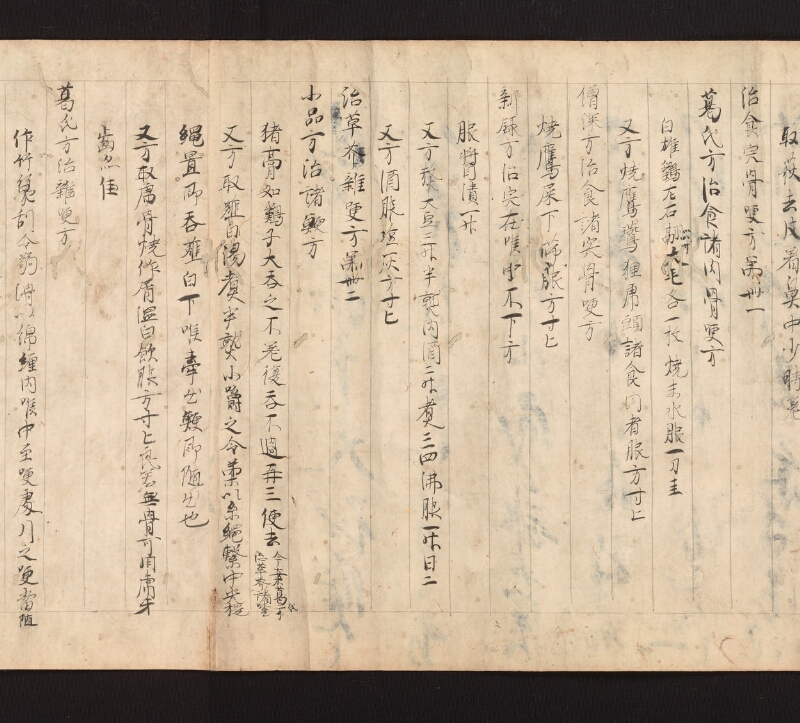 取莜去皮着鼻中少時差
治食宍骨哽方第卌一
葛氏方治食諸肉骨哽方
白雄鷄左右翮大毛各一枚燒末水服一刀圭
又方燒鷹鷲狸席頭諸食肉者服方寸匕
僧深方治食諸宍骨哽方
燒鷹屎下篩服方寸匕
新錄方治宍在喉中不下方
服醬漬一升
又方 大豆二升半 內酒二升煮三四沸服一升日二
又方酒服塩灰方寸匕
治草芥雜哽方第卌二
小品方治諸鯁方
猪膏如鷄子大吞之不差復吞不過再三便去
又方取薤白湯煮半熟小嚼之令柔以糸繩繫中央捉
繩置即吞薤白下喉牽出鯁即隨出也
又方取席骨燒作屑温白飲服方寸匕 無骨可用席牙
齒亦佳
葛氏方治雜哽方
作竹篾刮令 滑以綿纏內喉中至哽處引之哽當隨